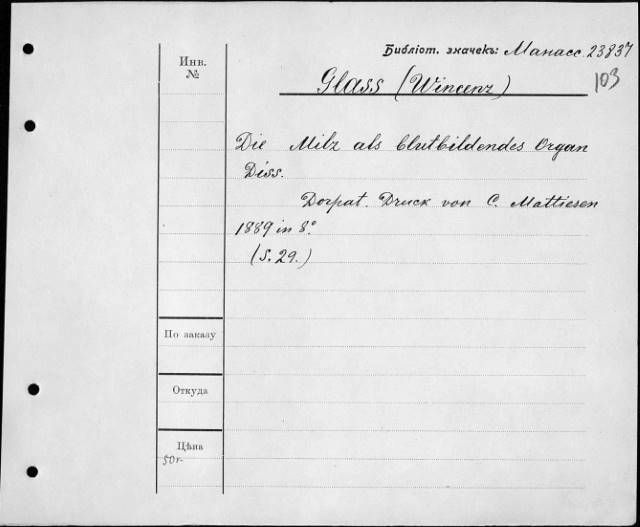 Библіот. значекъ: Манасс. 23837
Инв.
№
103
Glass (Wincenz)
Die Milz als blutbildendes Organ
Diss.
Dorpat. Druck von C. Mattiesen
1889 in 8º
(S. 29.)
По заказу
Откуда
Цѣна
50 г.